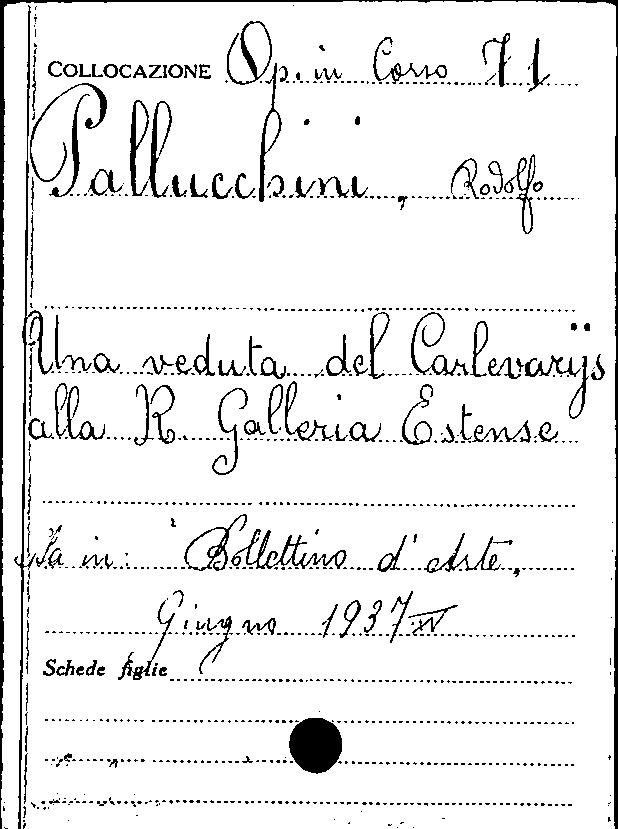 COLLOCAZIONE Op. in Corso 71
Pallucchini, Rodolfo
Una veduta del Carlevarijs
alla R. Galleria Estense
Sta in: "Bollettino d'Arte,
Giugno 1937 XV
Schede figlie